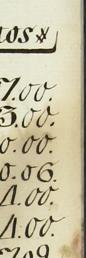 nos
7.00.
3.00.
0.00.
0.06.
1.00.
1.00.